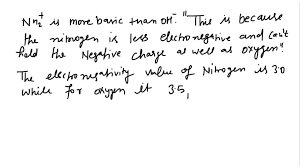 NH₂⁺ is more basic than OH⁻. "This is because
the nitrogen is less electronegative and can't
hold the Negative charge as well as oxygen".
The electronegativity value of Nitrogen is 3.0
while for oxygen it 3.5,